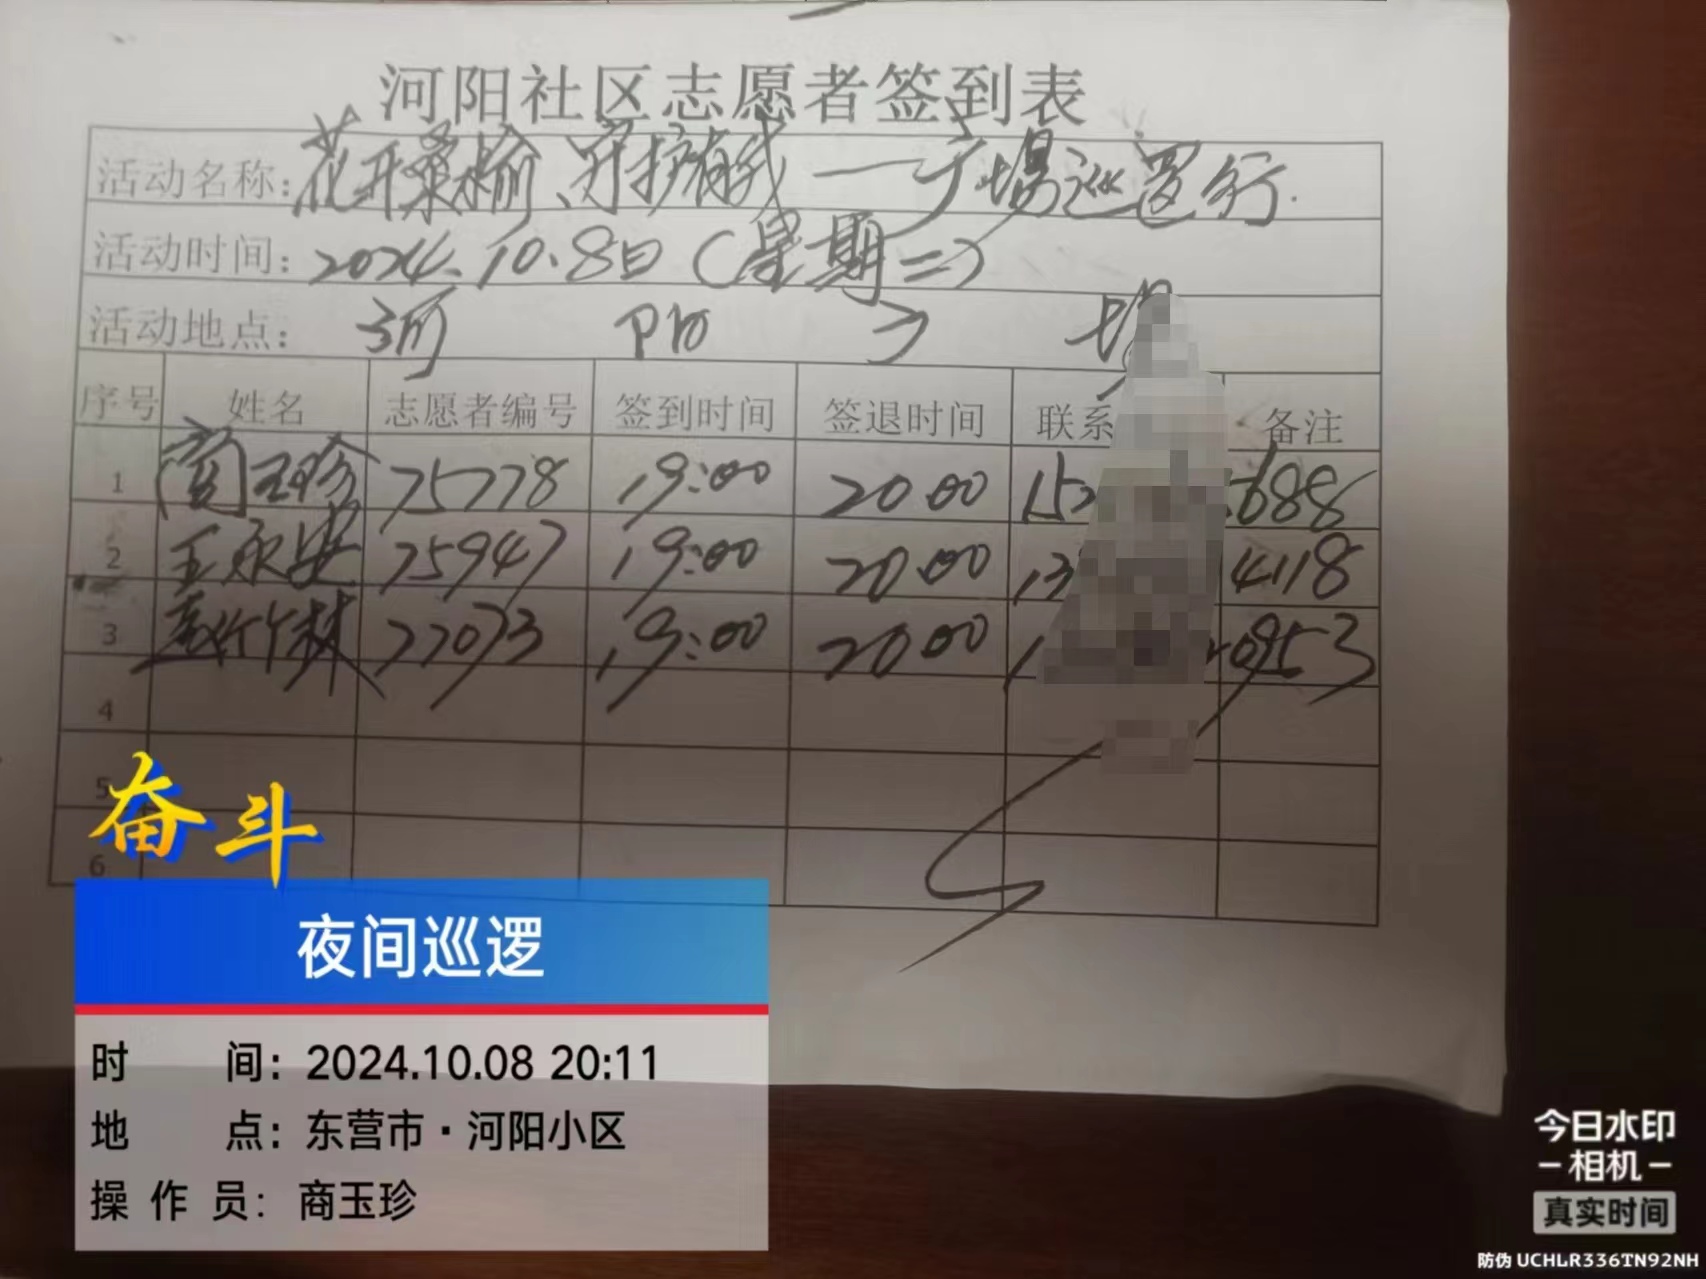 河阳社区志愿者签到表
活动名称：花开桑榆、守护有我 — 广场巡逻行.
活动时间：2024.10.8日（星期二）
活动地点： 河 阳 广 场
序号 姓名 志愿者编号 签到时间 签退时间 联系 备注
1 商玉珍 75778 19:00 20:00 152 688
2 王永安 75947 19:00 20:00 13 4118
3 竹林 77073 19:00 20:00 1 0953
4
5
6
奋斗
夜间巡逻
时 间：2024.10.08 20:11
地 点：东营市·河阳小区
操 作 员：商玉珍
今日水印
-相机-
真实时间
防伪 UCHLR336TN92NH